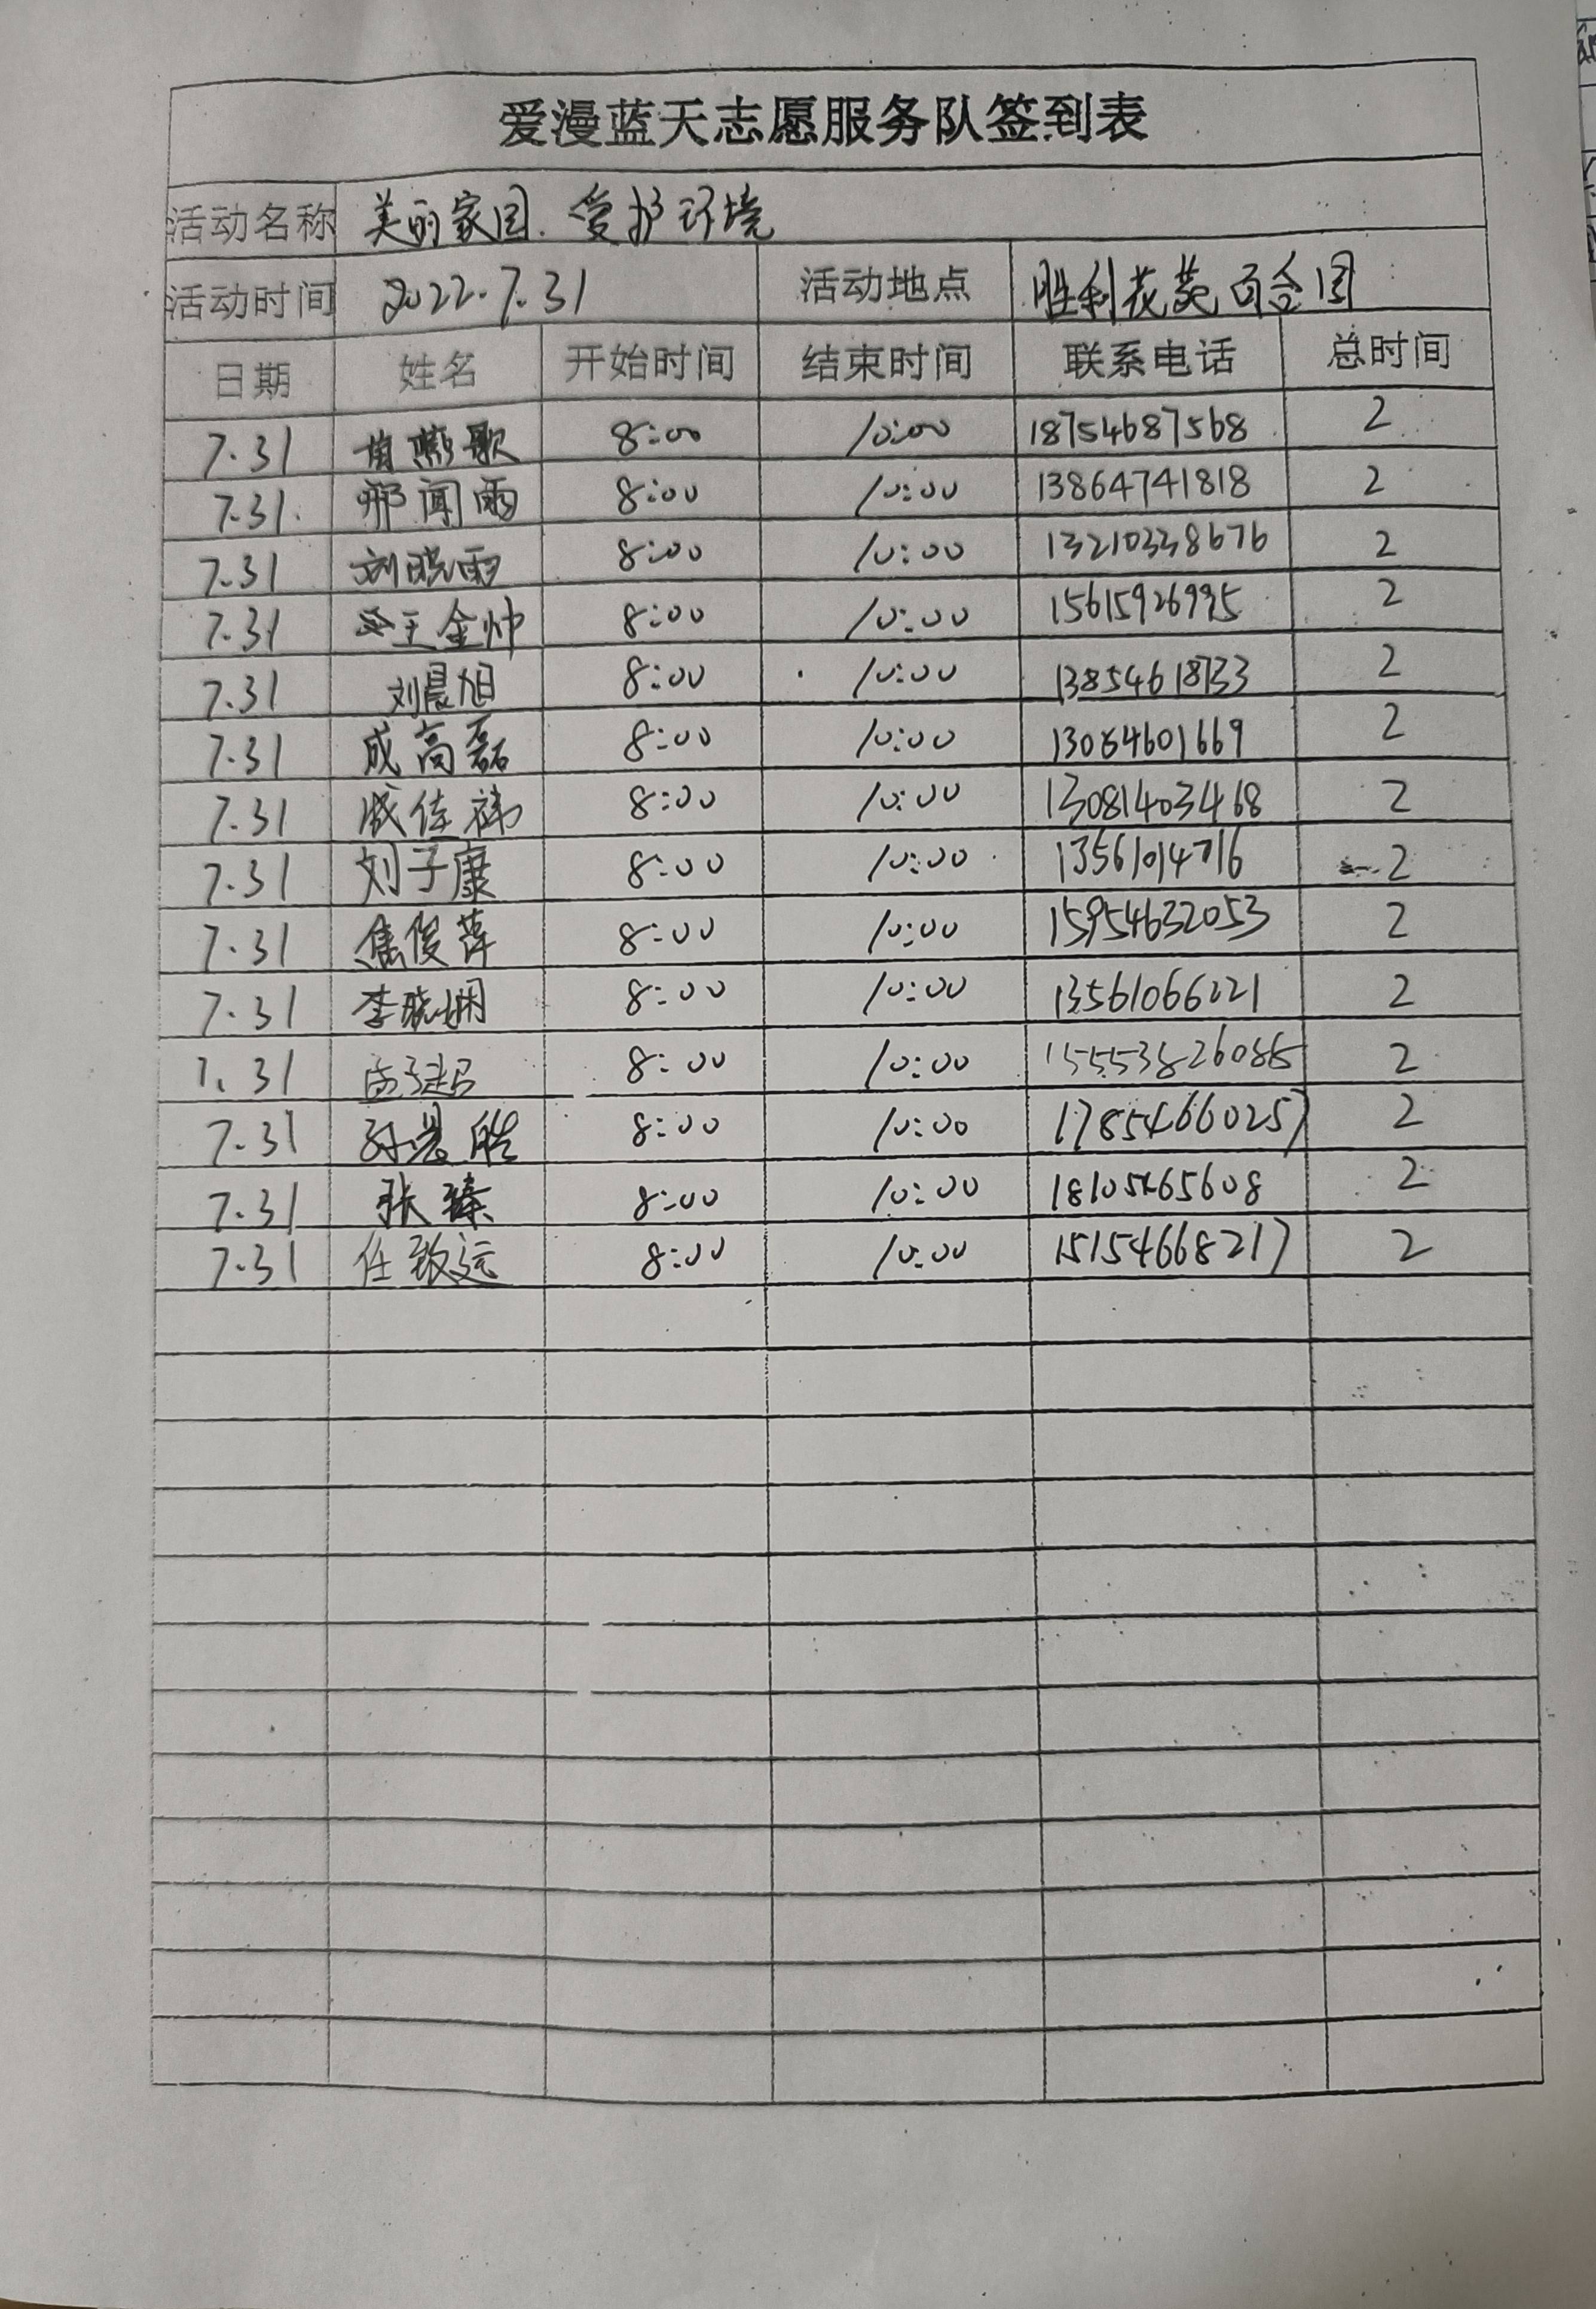 爱漫蓝天志愿服务队签到表
活动名称 美丽家园.爱护环境
活动时间 2022.7.31 活动地点 胜利花苑百合园
日期 姓名 开始时间 结束时间 联系电话 总时间
7.31 8:00 10:00 18754687568 2
7.31. 邢闻雨 8:00 10:00 13864741818 2
7.31 刘晓雨 8:00 10:00 13210338676 2
7.31 王金帅 8:00 10:00 15615926995 2
7.31 刘晨旭 8:00 10:00 13854618733 2
7.31 成高磊 8:00 10:00 2
7.31 成佳祎 8:00 10:00 13081403468 2
7.31 刘子康 8:00 10:00 13561014716 2
7.31 焦俊萍 8:00 10:00 15954632053 2
7.31 李晓娴 8:00 10:00 13561066221 2
7.31 8:00 10:00 2
7.31 8:00 10:00 17854660257 2
7.31 张臻 8:00 10:00 18105465608 2
7.31 任致远 8:00 10:00 15154668217 2